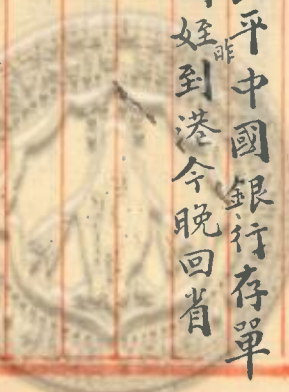 平中國銀行存單
姪昨到港今晚回省